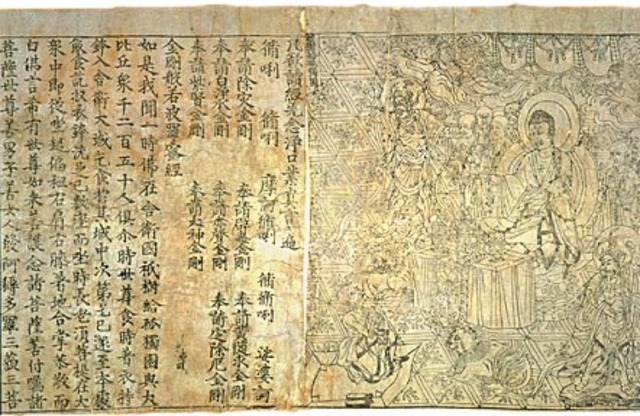 凡欲讀經先念淨口業真言遍
脩唎 脩唎 摩訶脩唎 脩脩唎 娑婆訶
奉請除灾金剛 奉請辟毒金剛 奉請黃隨求金剛
奉請白淨水金剛 奉請赤聲金剛 奉請定除厄金剛
奉請紫賢金剛 奉請大神金剛
金剛般若波羅蜜經
如是我聞一時佛在舍衛國祇樹給孤獨園與大
比丘衆千二百五十人俱尒時世尊食時著衣持
鉢入舍衛大城乞食於其城中次第乞已還至本處
飯食訖收衣鉢洗足已敷座而坐時長老湏菩提在大
衆中即從座起偏袒右肩右膝著地合掌恭敬而
白佛言希有世尊如來善護念諸菩薩善付囑諸
菩薩世尊善男子善女人發阿耨多羅三藐三菩